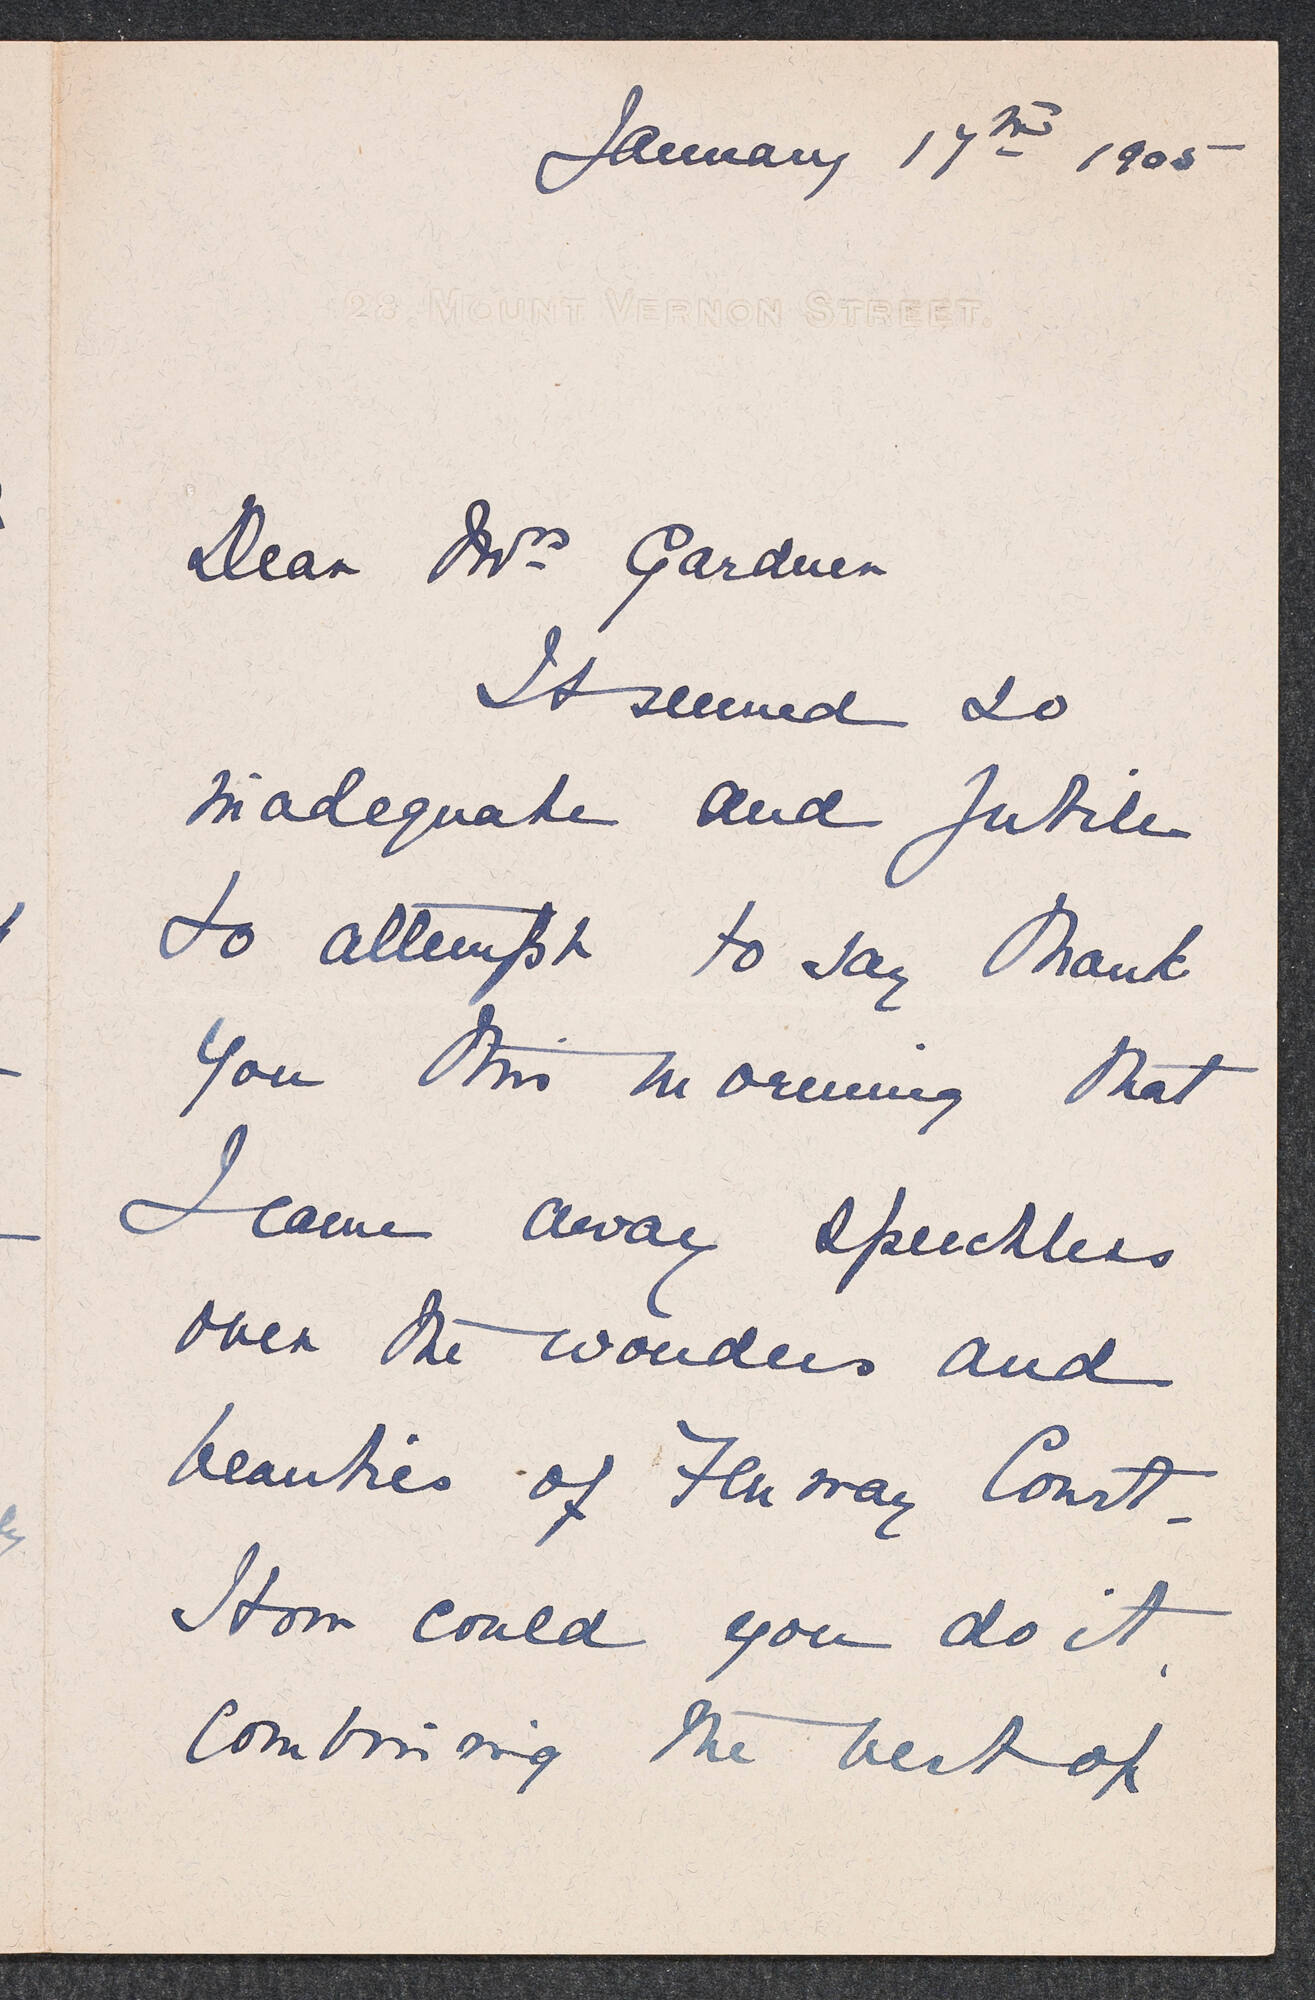 January 17th 1905
28. MOUNT VERNON STREET.
Dear Mrs Gardner
It seemed so
inadequate and futile
to attempt to say thank
you this morning that
I came away speechless
over the wonders and
beauties of Fenway Court -
How could you do it,
combining the best of